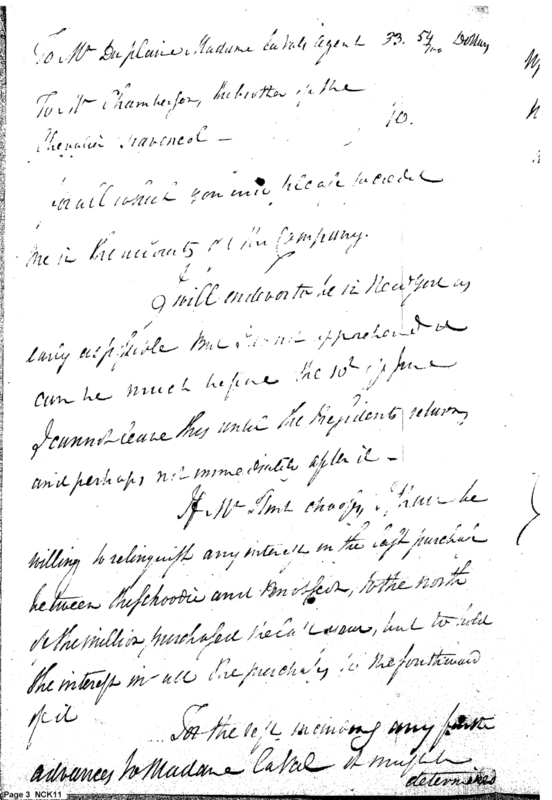 To Mr Duplaine Madame Lavals Agent 33. 54/100 Dollars
To Mr Chamberson, the brother of the
Chevalier 10.
for all which you will please to credit
me in the accounts of the Company.
I will endevor to be in New York as
early as possible But I do not apprehend it
can be much before the 10th of June
I cannot leave this until the Presidents return,
and perhaps not immediately after it -
If Mr Flint chooses, I shall be
willing to relinquish any interest in the last purchase
between the Schoodic and , to the north
of the million, purchased the last year, but to hold
the interest in all the purchases to the southward
of it
For the rest including any further
advances to Madame Laval it might be
determined
Page 3 NCK11